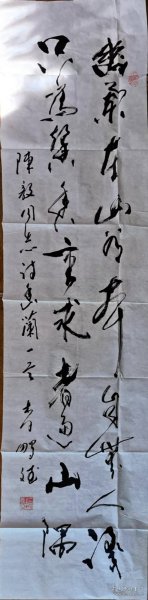 幽兰在山谷本自无人识
只为馨香重求者遍山隅
陈毅同志诗幽兰一首 青鹏书